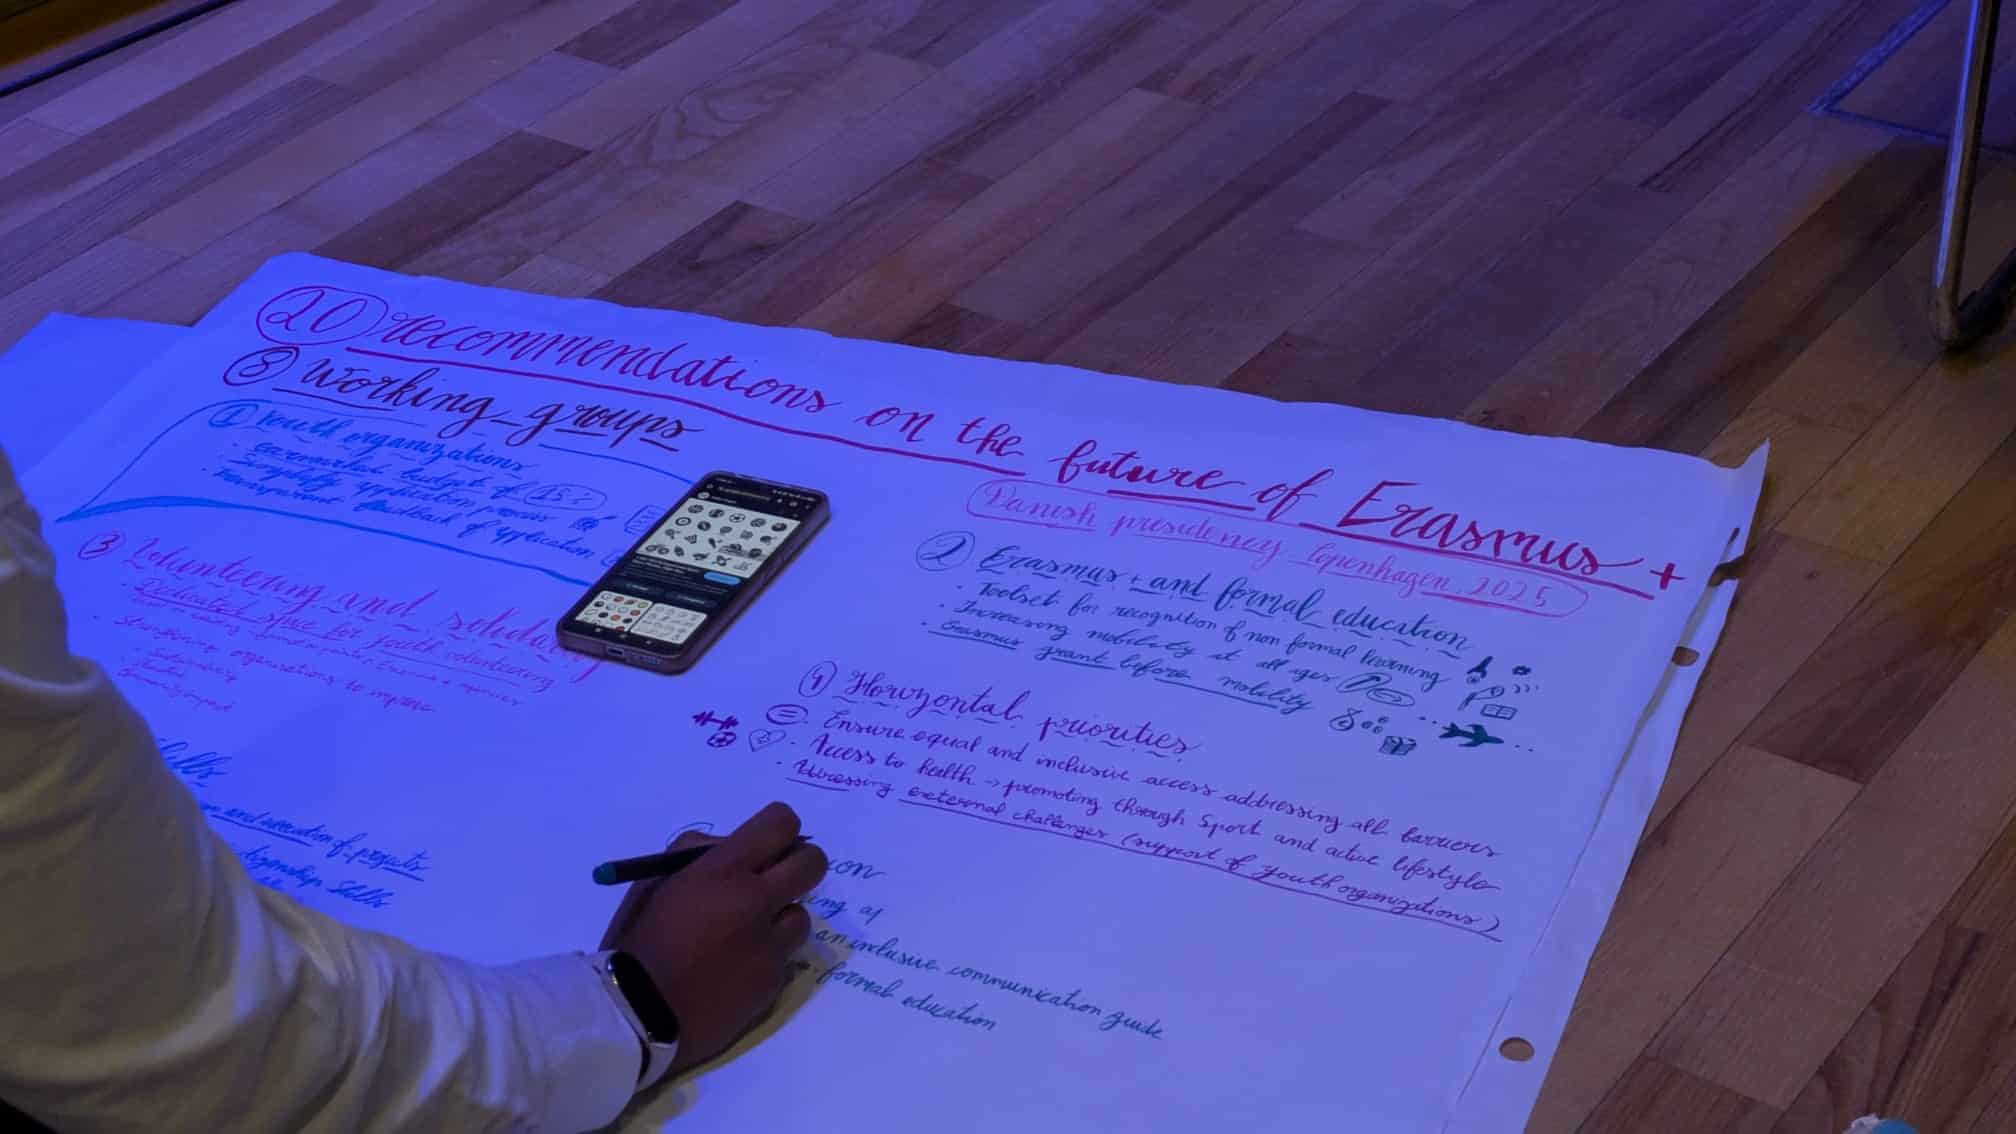 20 recommendations on the future of Erasmus +
8 Working groups
Danish presidency Copenhagen, 2025
1 Youth organizations
earmarked budget of 15%
Simplify application process
transparent feedback of application
2 Erasmus + and formal education
• Toolset for recognition of non formal learning
• Increasing mobility at all ages
• Erasmus grant before mobility
3 Volunteering and
• Dedicated space for youth volunteering
• Strengthening organisations to improve
Community impact
9 Horizontal priorities
Ensure equal and inclusive access addressing all barriers
• Access to health → promoting through sport and active lifestyle
external challenges (support of youth organizations)
Skills
and execution of projects
Skills
an inclusive communication guide
formal education